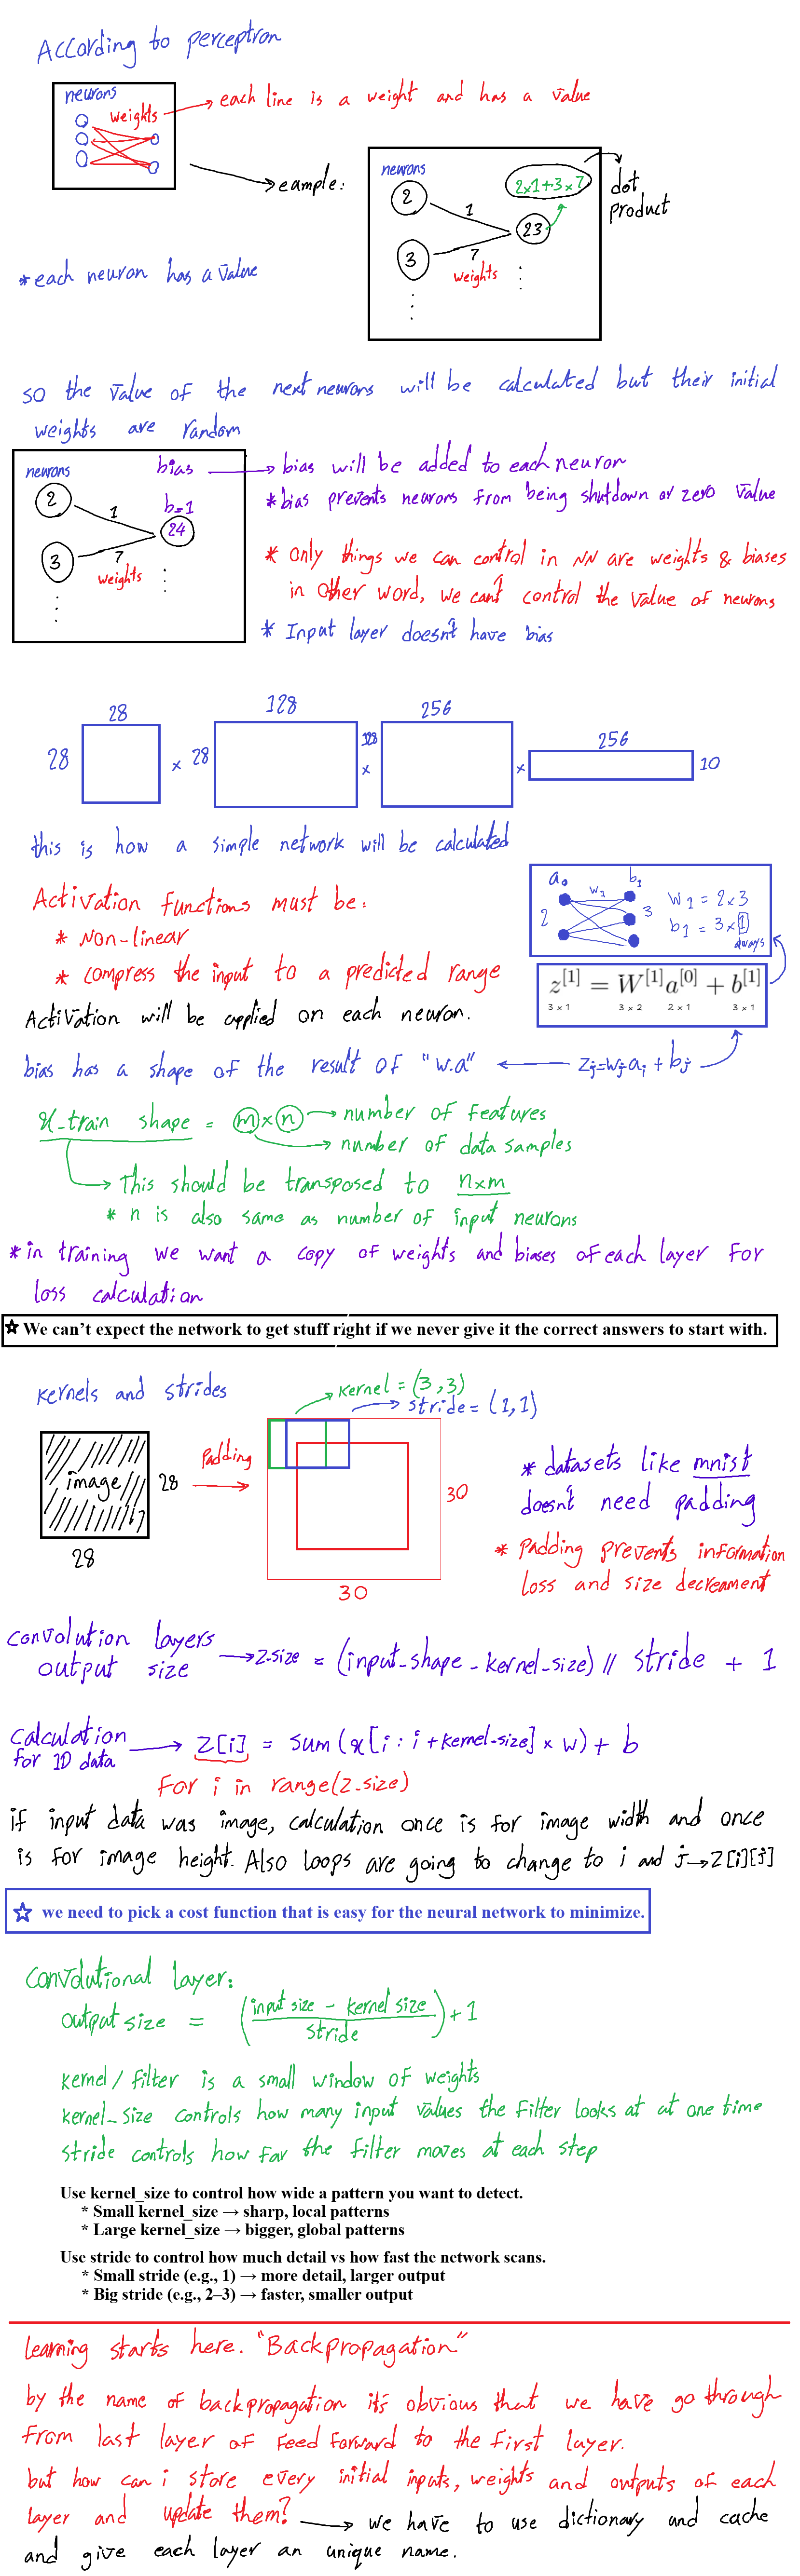 According to perceptron
neurons
weights
each line is a weight and has a value
eample:
neurons
2
1
2x1+3x7
dot
product
23
3
7
weights
* each neuron has a value
so the value of the next neurons will be calculated but their initial
weights are random
neurons
bias
bias will be added to each neuron
2
1
b=1
* bias prevents neurons from being shutdown or zero value
24
3
7
weights
* Only things we can control in NN are weights & biases
in other word, we can't control the value of neurons
* Input layer doesn't have bias
28
128
256
28
x
28
128
x
x
256
10
this is how a simple network will be calculated
Activation functions must be:
* Non-linear
* compress the input to a predicted range
Activation will be applied on each neuron.
a0
w1
b1
2
3
W1 = 2x3
b1 = 3x1
always
z[1] = W[1]a[0] + b[1]
3 x 1 3 x 2 2 x 1 3 x 1
bias has a shape of the result of "w.a"
zj=wjai + bj
x_train shape = m x n
number of features
number of data samples
This should be transposed to nxm
* n is also same as number of input neurons
* in training we want a copy of weights and biases of each layer for
loss calculation
☆ We can't expect the network to get stuff right if we never give it the correct answers to start with.
kernels and strides
kernel = (3,3)
stride = (1,1)
image
28
28
Padding
30
30
* datasets like mnist
doesn't need padding
* Padding prevents information
loss and size decreament
convolution layers
output size
z-size = (input_shape - kernel_size) // stride + 1
calculation
for 1D data
z[i] = sum(x[i : i + kernel-size] x w) + b
for i in range(z-size)
if input data was image, calculation once is for image width and once
is for image height. Also loops are going to change to i and j→z[i][j]
☆ we need to pick a cost function that is easy for the neural network to minimize.
convolutional layer:
output size = (input size - kernel size / stride) + 1
kernel / filter is a small window of weights
kernel_size controls how many input values the filter looks at at one time
stride controls how far the filter moves at each step
Use kernel_size to control how wide a pattern you want to detect.
* Small kernel_size → sharp, local patterns
* Large kernel_size → bigger, global patterns
Use stride to control how much detail vs how fast the network scans.
* Small stride (e.g., 1) → more detail, larger output
* Big stride (e.g., 2–3) → faster, smaller output
learning starts here. "Backpropagation"
by the name of backpropagation it's obvious that we have go through
from last layer of feed forward to the first layer.
but how can i store every initial inputs, weights and outputs of each
layer and update them? → we have to use dictionary and cache
and give each layer an unique name.